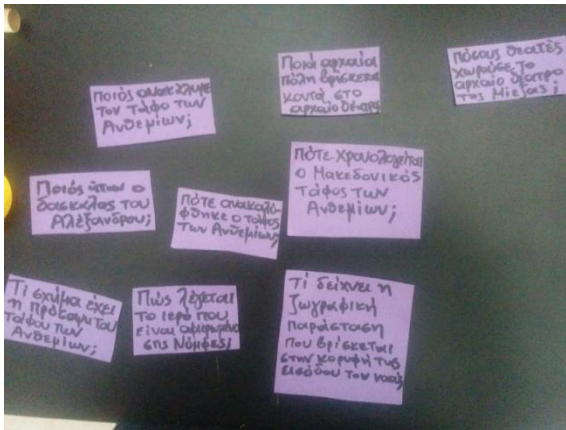 Ποιός ανακάλυψε
τον τάφο των
Ανθεμίων;
Ποιά αρχαία
πόλη βρίσκεται
κοντά στο
αρχαίο θέατρο
Πόσους θεατές
χωρούσε το
αρχαίο θέατρο
της Μίεζας;
Ποιός ήταν ο
δάσκαλος του
Αλέξανδρου;
Πότε ανακαλύ-
φθηκε ο τάφος
των Ανθεμίων;
Πότε χρονολογείται
ο Μακεδονικός
τάφος των
Ανθεμίων;
Τί σχήμα έχει
η πρόσοψη του
τάφου των
Ανθεμίων;
Πώς λέγεται
το ιερό που
είναι αφιερωμένο
στις Νύμφες;
Τί δείχνει η
ζωγραφική
παράσταση
που βρίσκεται
στην κορυφή της
εισόδου του ναού;